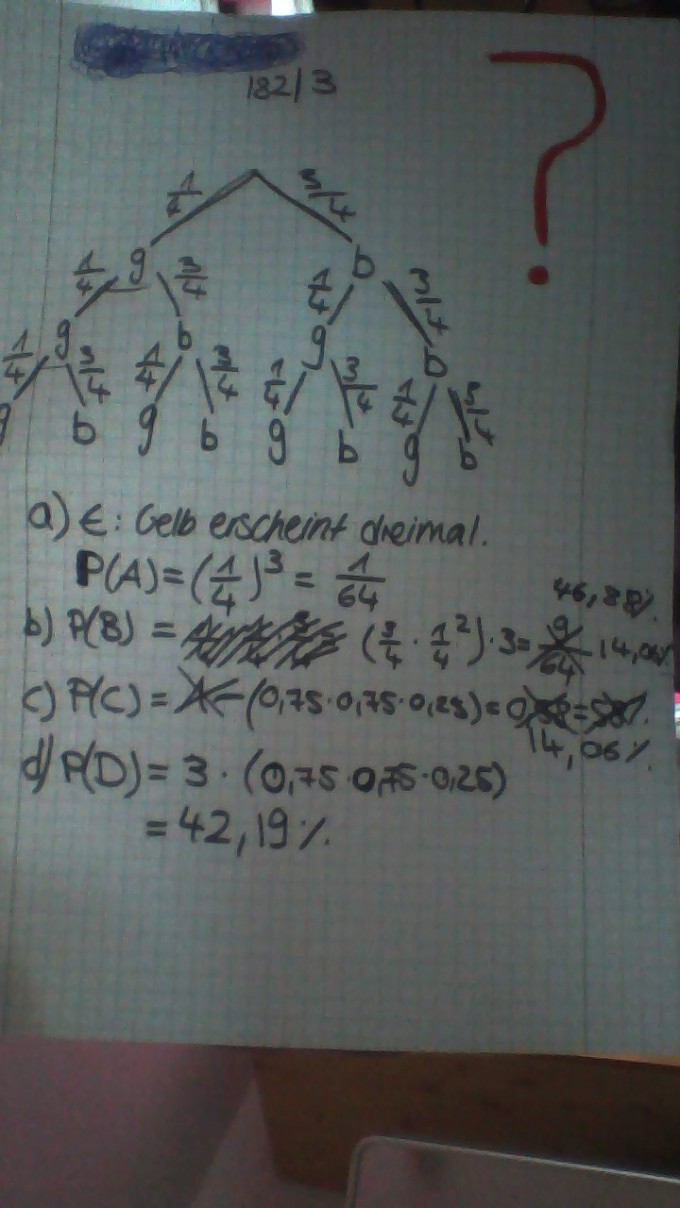 182/3
1/4 3/4
g b
1/4 3/4 1/4 3/4
g b g b
1/4 3/4 1/4 3/4 1/4 3/4 1/4 3/4
g b g b g b g b
?
a) E: Gelb erscheint dreimal.
P(A) = (1/4)^3 = 1/64
46,88%
b) P(B) = (3/4 · 1/4^2) · 3 = 9/64 14,06%
c) P(C) = 1- (0,75·0,75·0,25) =
14,06%
d) P(D) = 3 · (0,75·0,75·0,25)
= 42,19%